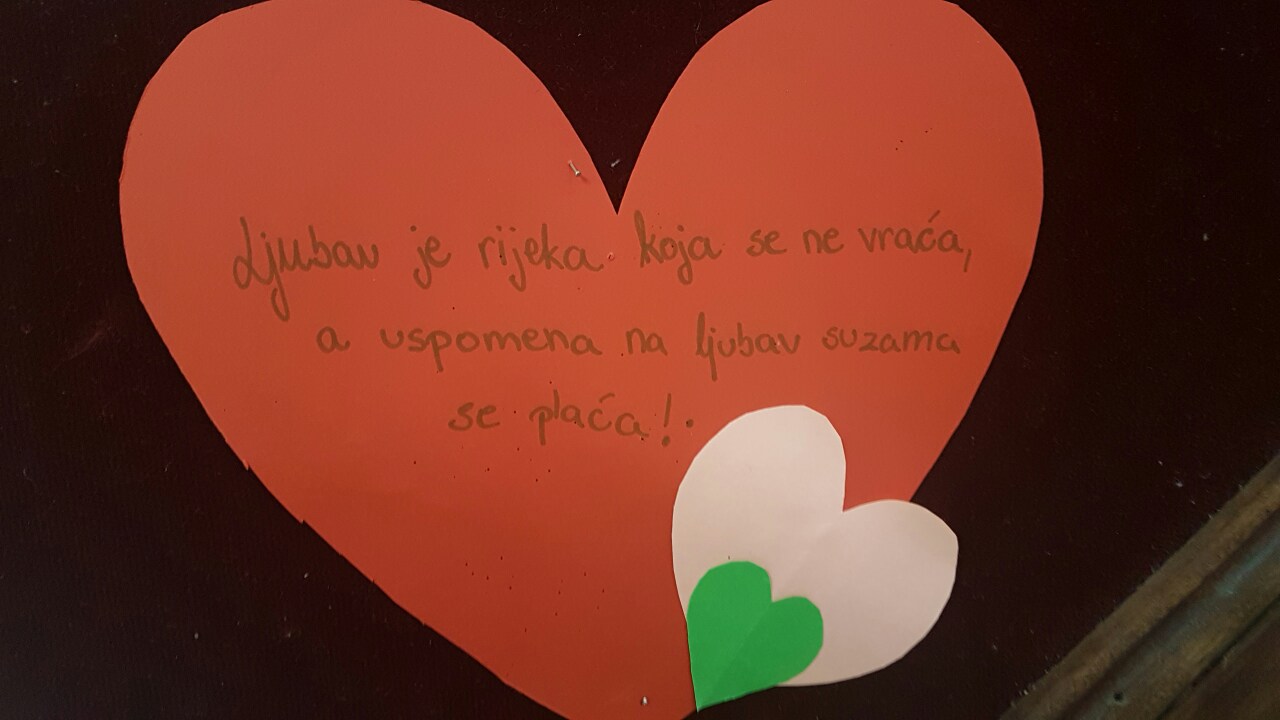 Ljubav je rijeka koja se ne vraća,
a uspomena na ljubav suzama
se plaća!